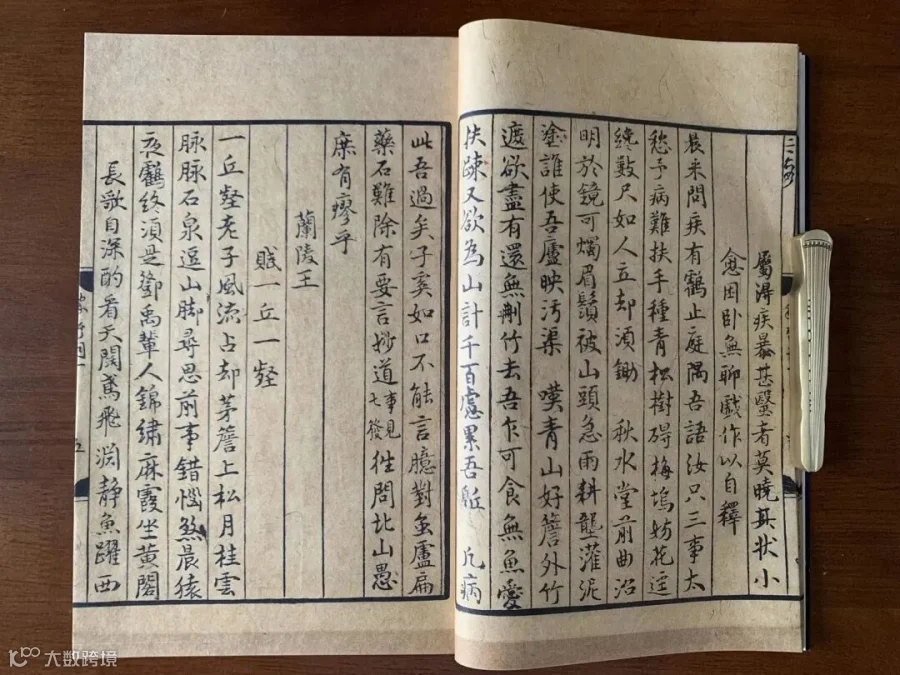 屬得疾暴甚醫者莫曉其狀小
愈困臥無聊戲作以自釋
晨來問疾有鶴止庭隅吾語汝只三事太
愁予病難扶手種青松樹礙梅塢妨花逕
纔數尺如人立却湏鋤　秋水堂前曲沼
明於鏡可燭眉鬚被山頭急雨耕壟灌泥
塗誰使吾廬映汚渠　嘆青山好簷外竹
遮欲盡有還無刪竹去吾乍可食無魚愛
扶疎又欲為山計千百慮累吾軀　凡病
此吾過矣子奚如口不能言臆對雖盧扁
藥石難除有要言妙道事見七發徃問北山愚
庶有瘳乎
蘭陵王
賦一丘一壑
一丘壑老子風流占却茅簷上松月桂雲
脉脉石泉逗山脚尋思前事錯惱煞晨猿
夜鶴終湏是鄧禹輩人錦繡麻霞坐黃閣
長歌自深酌看天闊鳶飛淵靜魚躍西
五
大数跨境